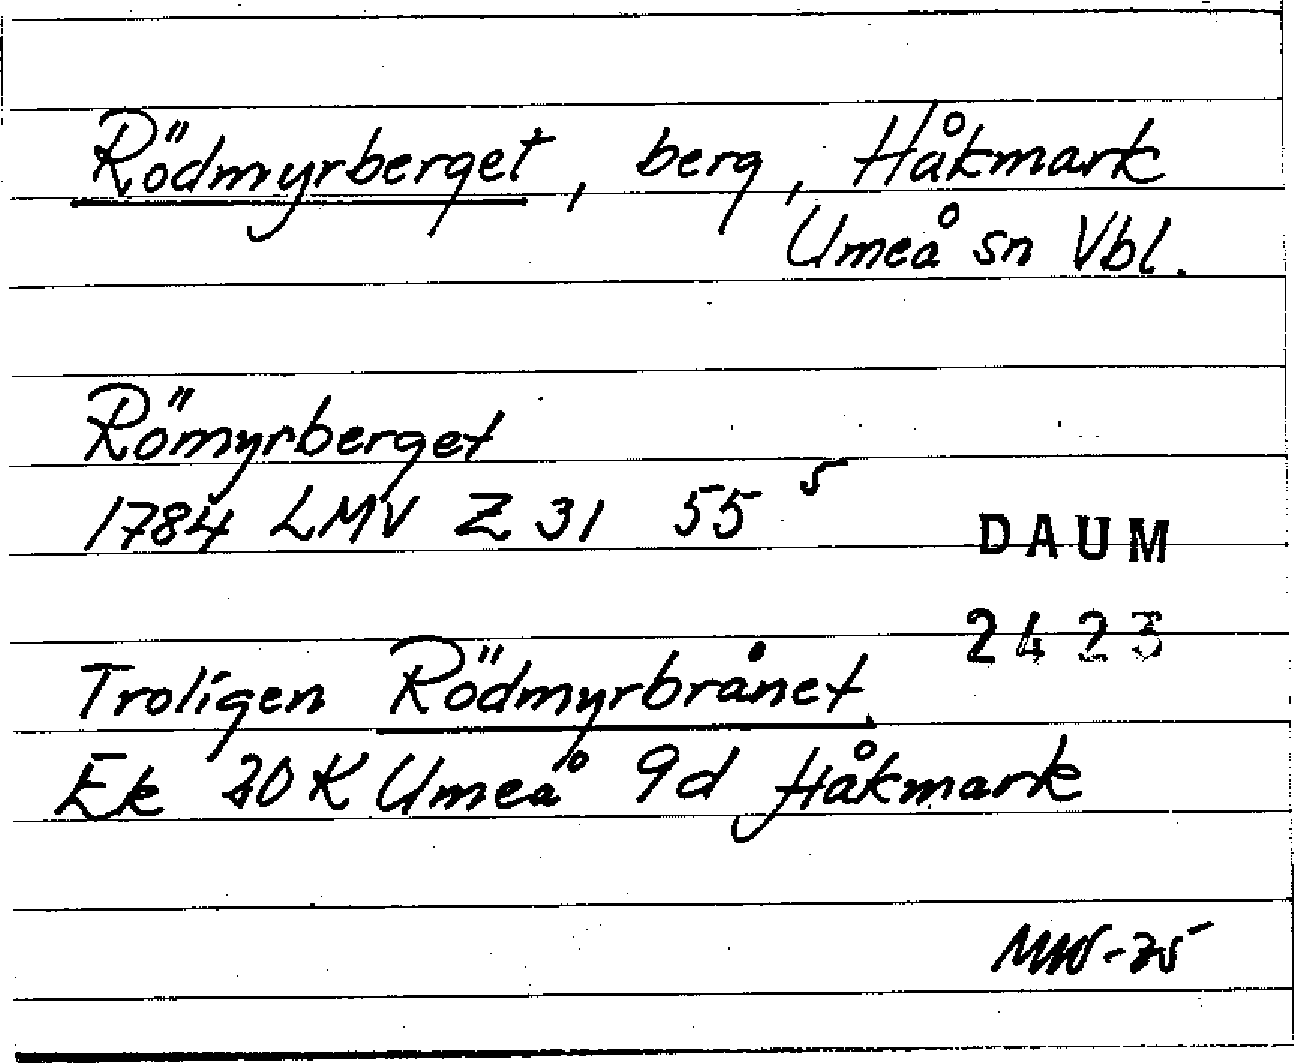 Rödmyrberget, berg, Håkmark
Umeå sn Vbl.
Römyrberget
1784 LMV Z 31 55 5
DAUM
2423
Troligen Rödmyrbrånet.
Ek 20K Umeå 9d Håkmark
MW-75